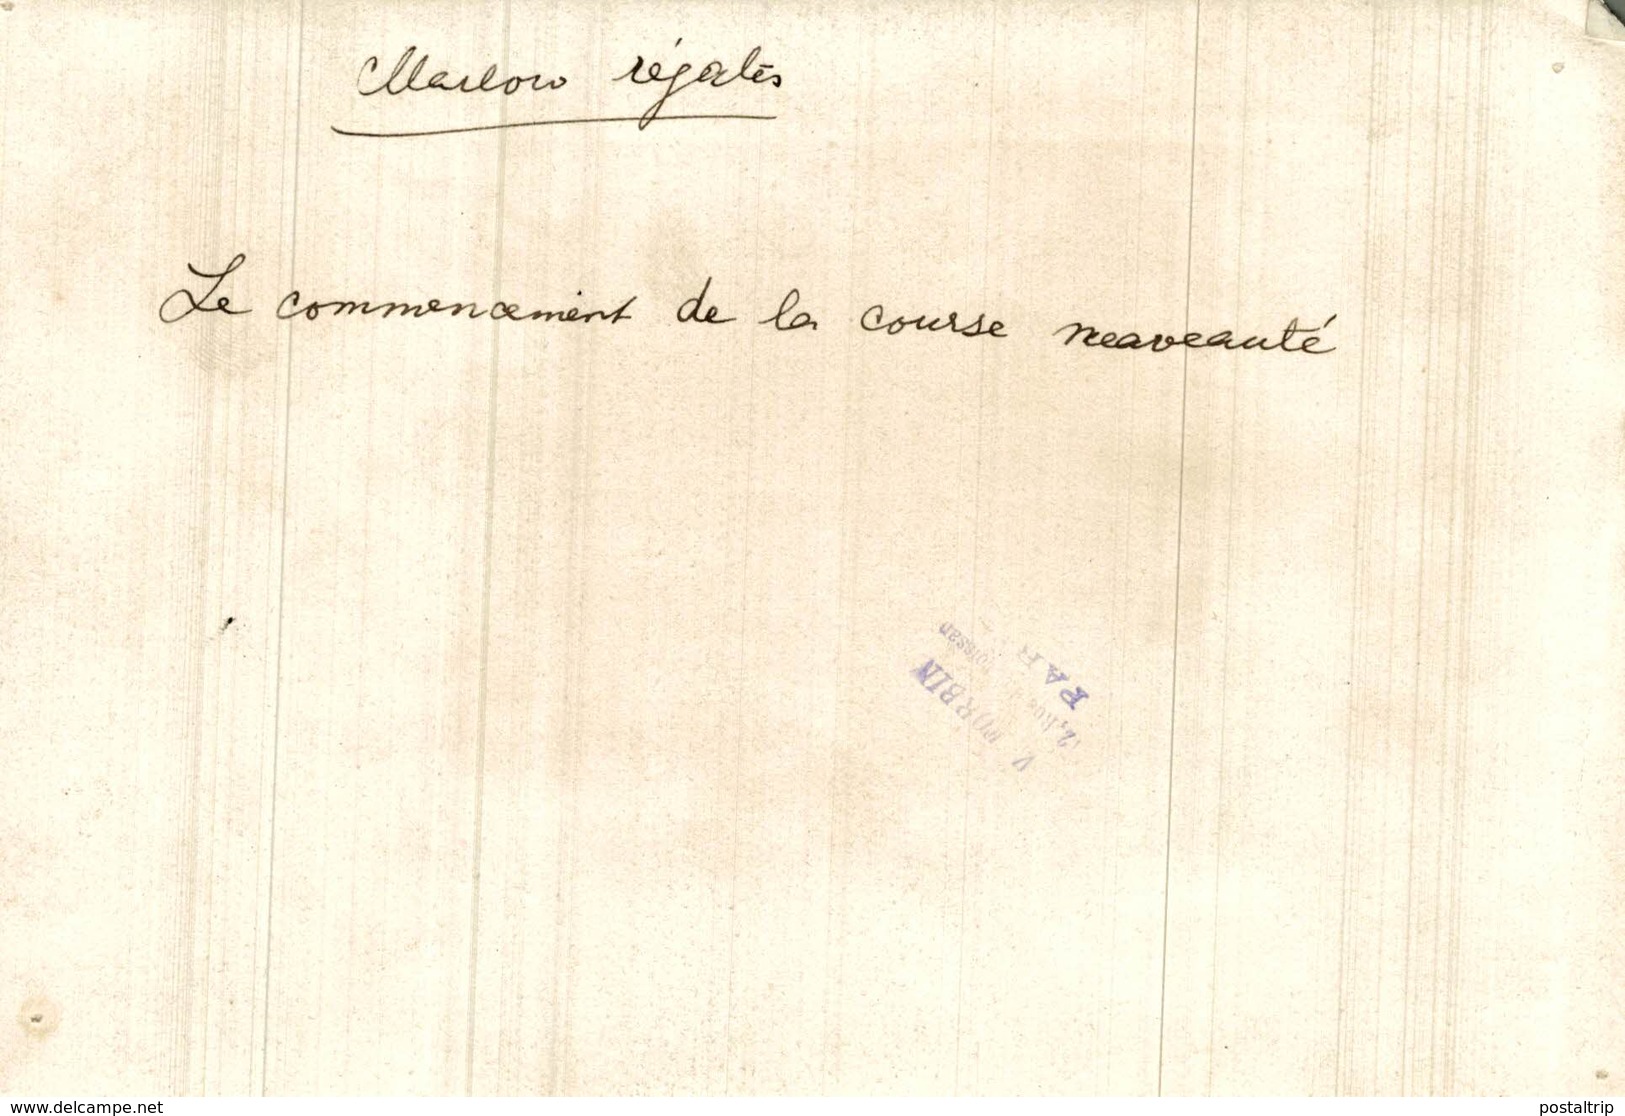 Marlow régates
Le commencement de la course neaveauté
V FORBIN
2, Rue
PAR
www.delcampe.net
postaltrip